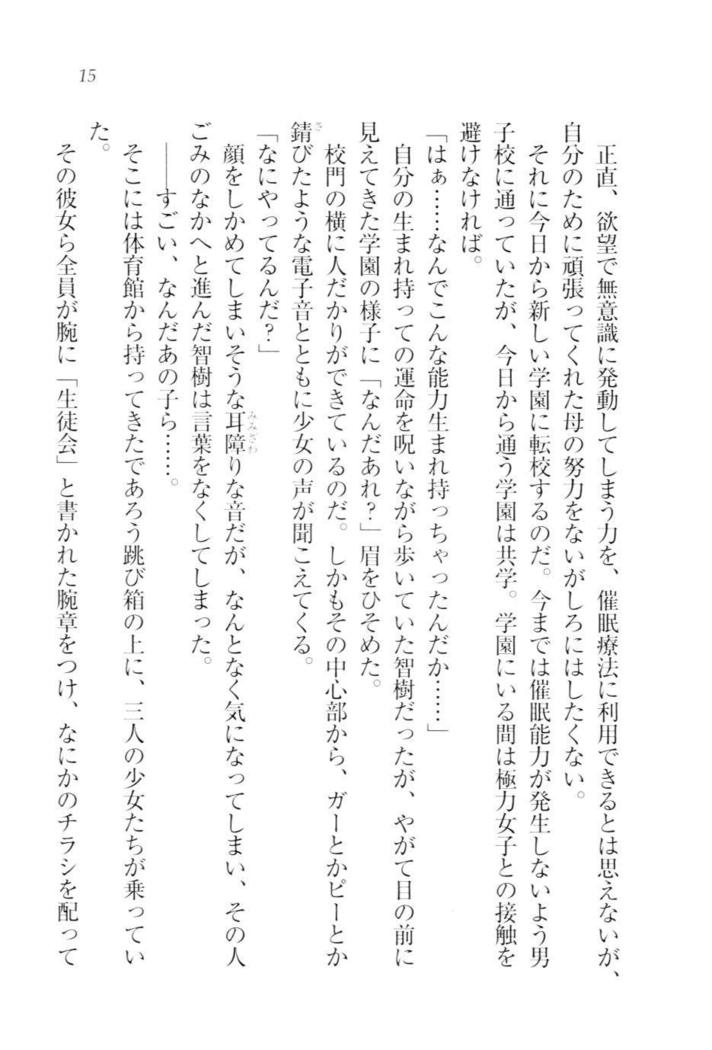 15
正直、欲望で無意識に発動してしまう力を、催眠療法に利用できるとは思えないが、
自分のために頑張ってくれた母の努力をないがしろにはしたくない。
それに今日から新しい学園に転校するのだ。今までは催眠能力が発生しないよう男
子校に通っていたが、今日から通う学園は共学。学園にいる間は極力女子との接触を
避けなければ。
「はぁ……なんでこんな能力生まれ持っちゃったんだか……」
自分の生まれ持っての運命を呪いながら歩いていた智樹だったが、やがて目の前に
見えてきた学園の様子に「なんだあれ？」眉をひそめた。
校門の横に人だかりができているのだ。しかもその中心部から、ガーとかピーとか
錆びたような電子音とともに少女の声が聞こえてくる。
「なにやってるんだ？」
顔をしかめてしまいそうな耳障りな音だが、なんとなく気になってしまい、その人
ごみのなかへと進んだ智樹は言葉をなくしてしまった。
――すごい、なんだあの子ら……。
そこには体育館から持ってきたであろう跳び箱の上に、三人の少女たちが乗ってい
た。
その彼女ら全員が腕に「生徒会」と書かれた腕章をつけ、なにかのチラシを配って